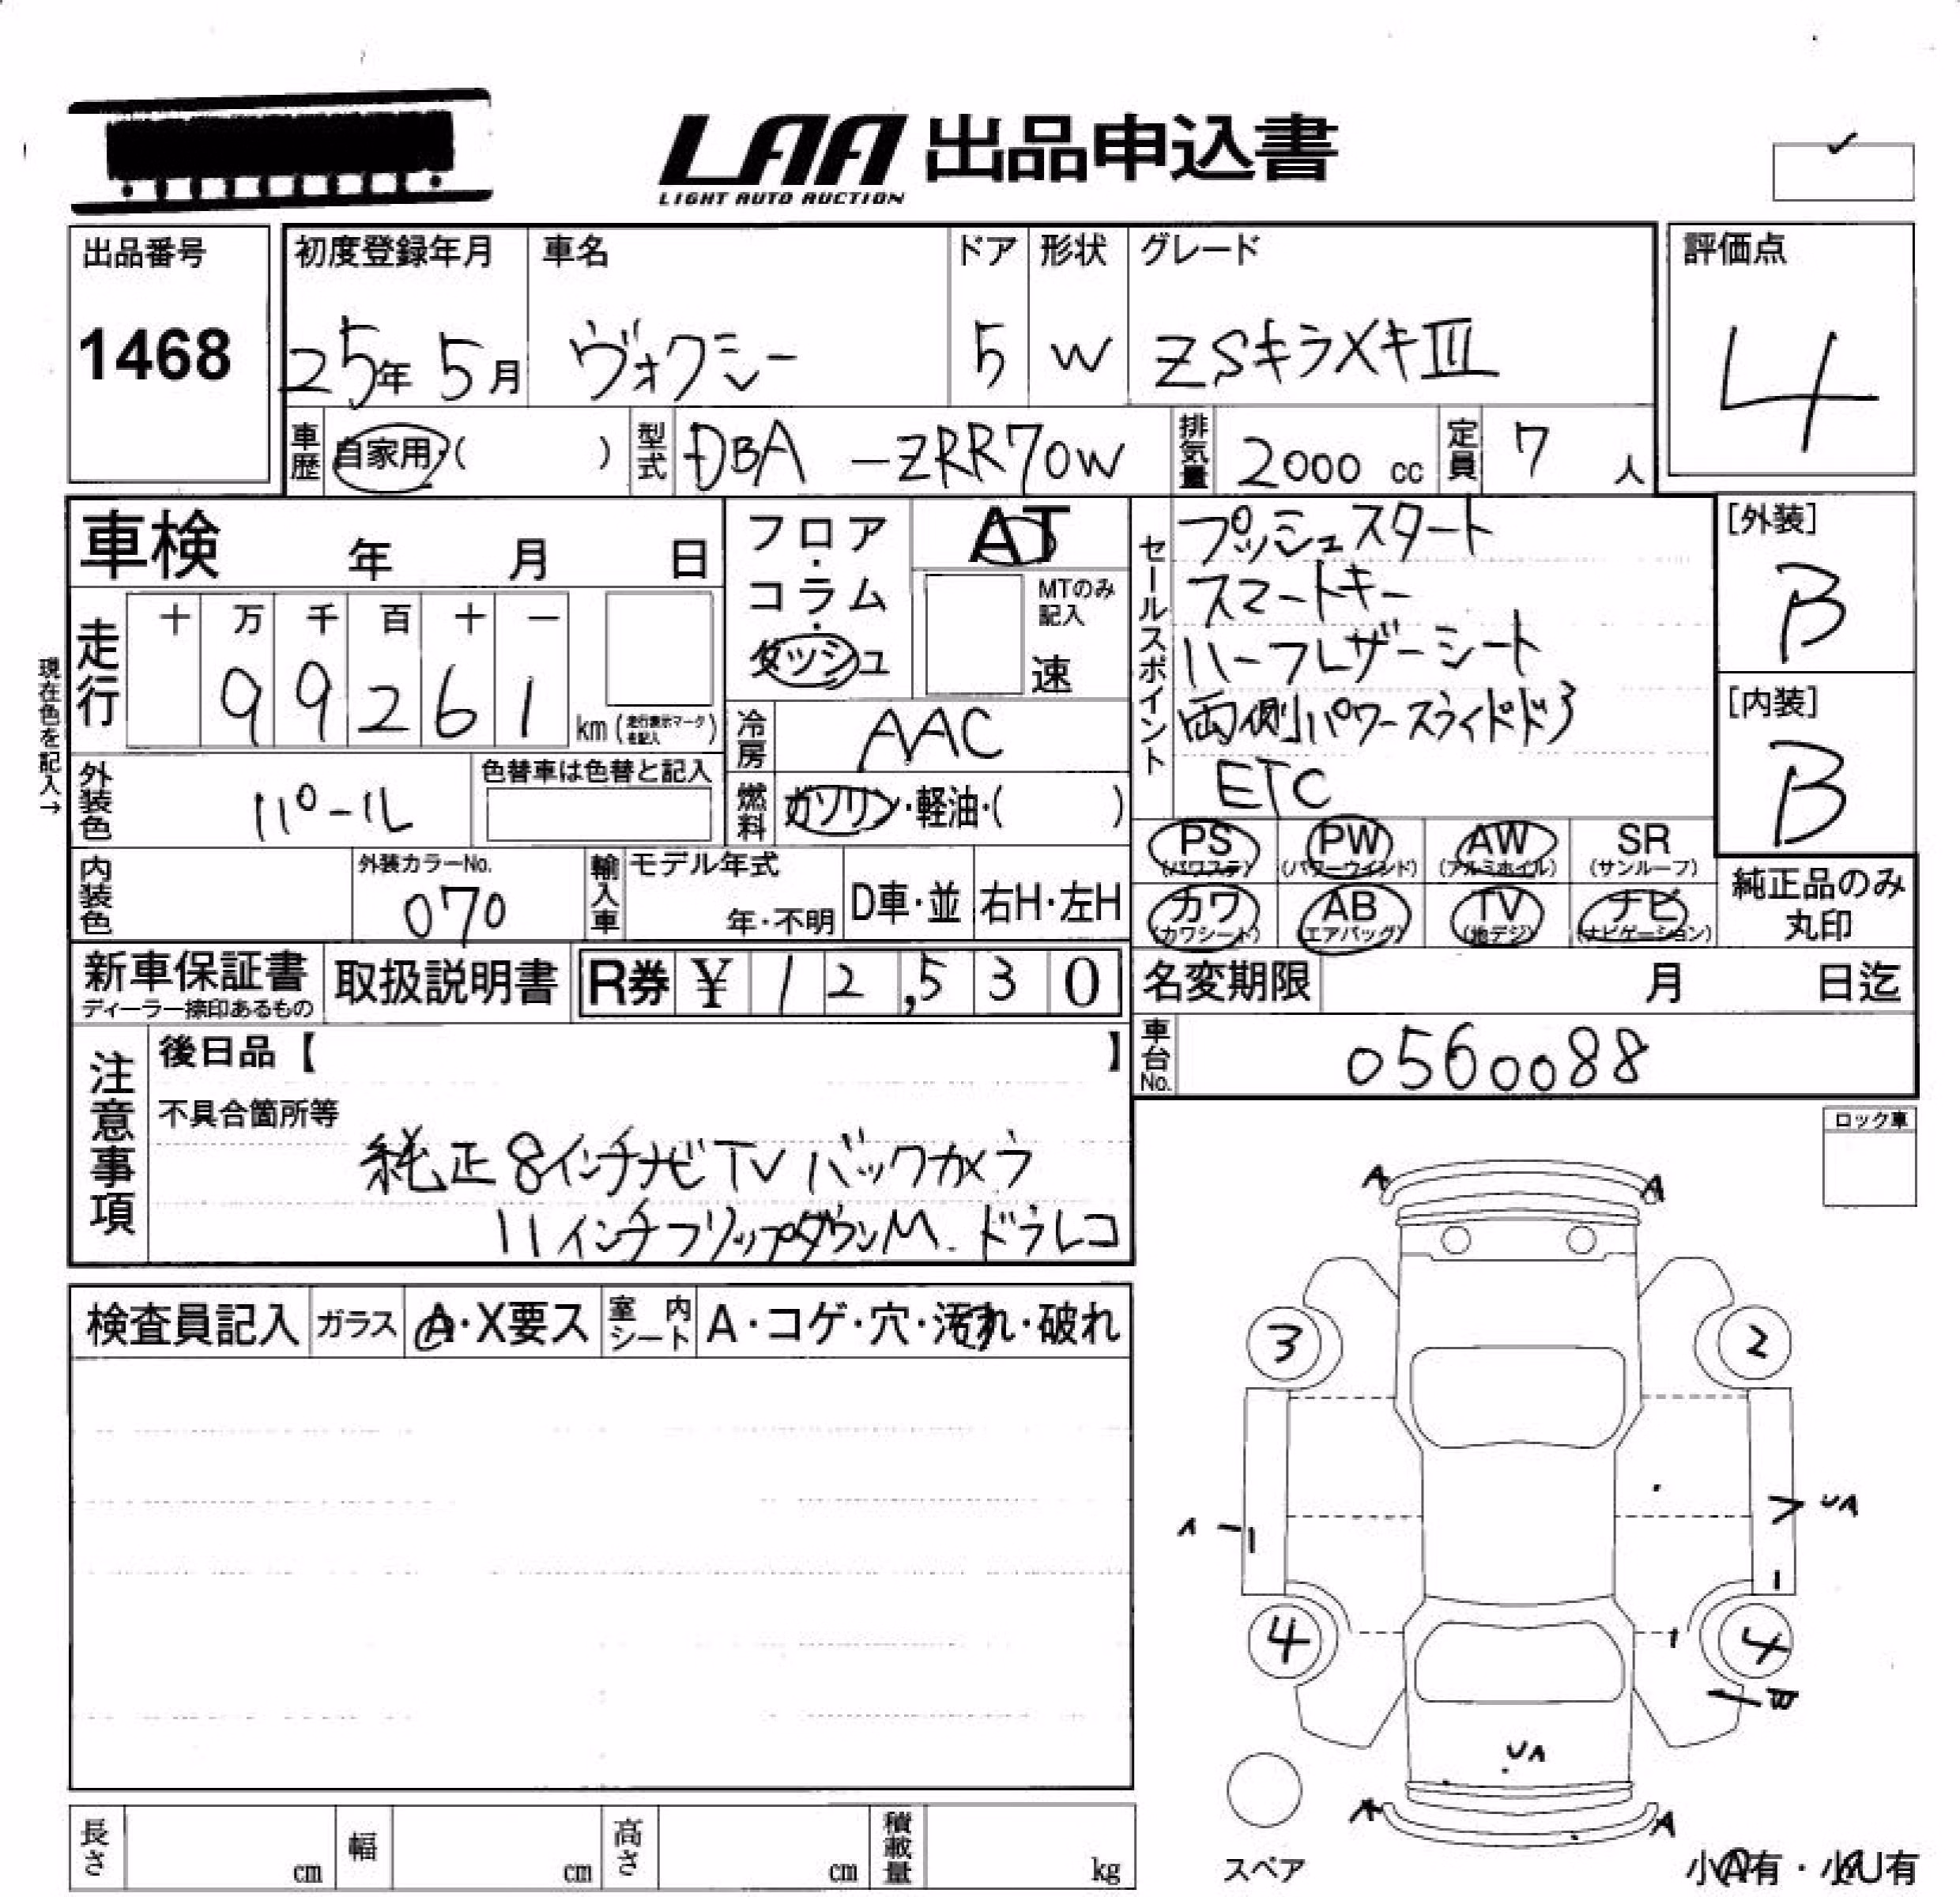 LAA 出品申込書
LIGHT AUTO AUCTION
出品番号
1468
初度登録年月
25年 5月
車名
ヴォクシー
ドア
5
形状
W
グレード
ZSキラメキⅢ
評価点
4
車歴
自家用・( )
型式
DBA -ZRR70W
排気量
2000 cc
定員
7 人
車検 年 月 日
現在色を記入→
走行
十 万 千 百 十 一
9 9 2 6 1
km (走行表示マークを記入)
フロア・コラム・ダッシュ
AT
MTのみ記入
速
冷房
AAC
燃料
ガソリン・軽油・( )
セールスポイント
プッシュスタート
スマートキー
ハーフレザーシート
両側パワースライドドア
ETC
[外装]
B
[内装]
B
外装色
パール
色替車は色替と記入
内装色
外装カラーNo.
070
輸入車
モデル年式
年・不明
D車・並
右H・左H
PS (パワステ)
PW (パワーウインド)
AW (アルミホイル)
SR (サンルーフ)
カワ (カワシート)
AB (エアバッグ)
TV (地デジ)
ナビ (ナビゲーション)
純正品のみ
丸印
新車保証書
ディーラー捺印あるもの
取扱説明書
R券 ¥ 1 2 ,5 3 0
名変期限 月 日迄
車台No.
0560088
注意事項
後日品【 】
不具合箇所等
純正8インチナビTVバックカメラ
11インチフリップダウンM. ドラレコ
ロック車
検査員記入
ガラス
A・X要ス
室内シート
A・コゲ・穴・汚れ・破れ
A A
3 2
UA
A
4 4
UA
A A
スペア
小A有・小U有
長さ cm
幅 cm
高さ cm
積載量 kg